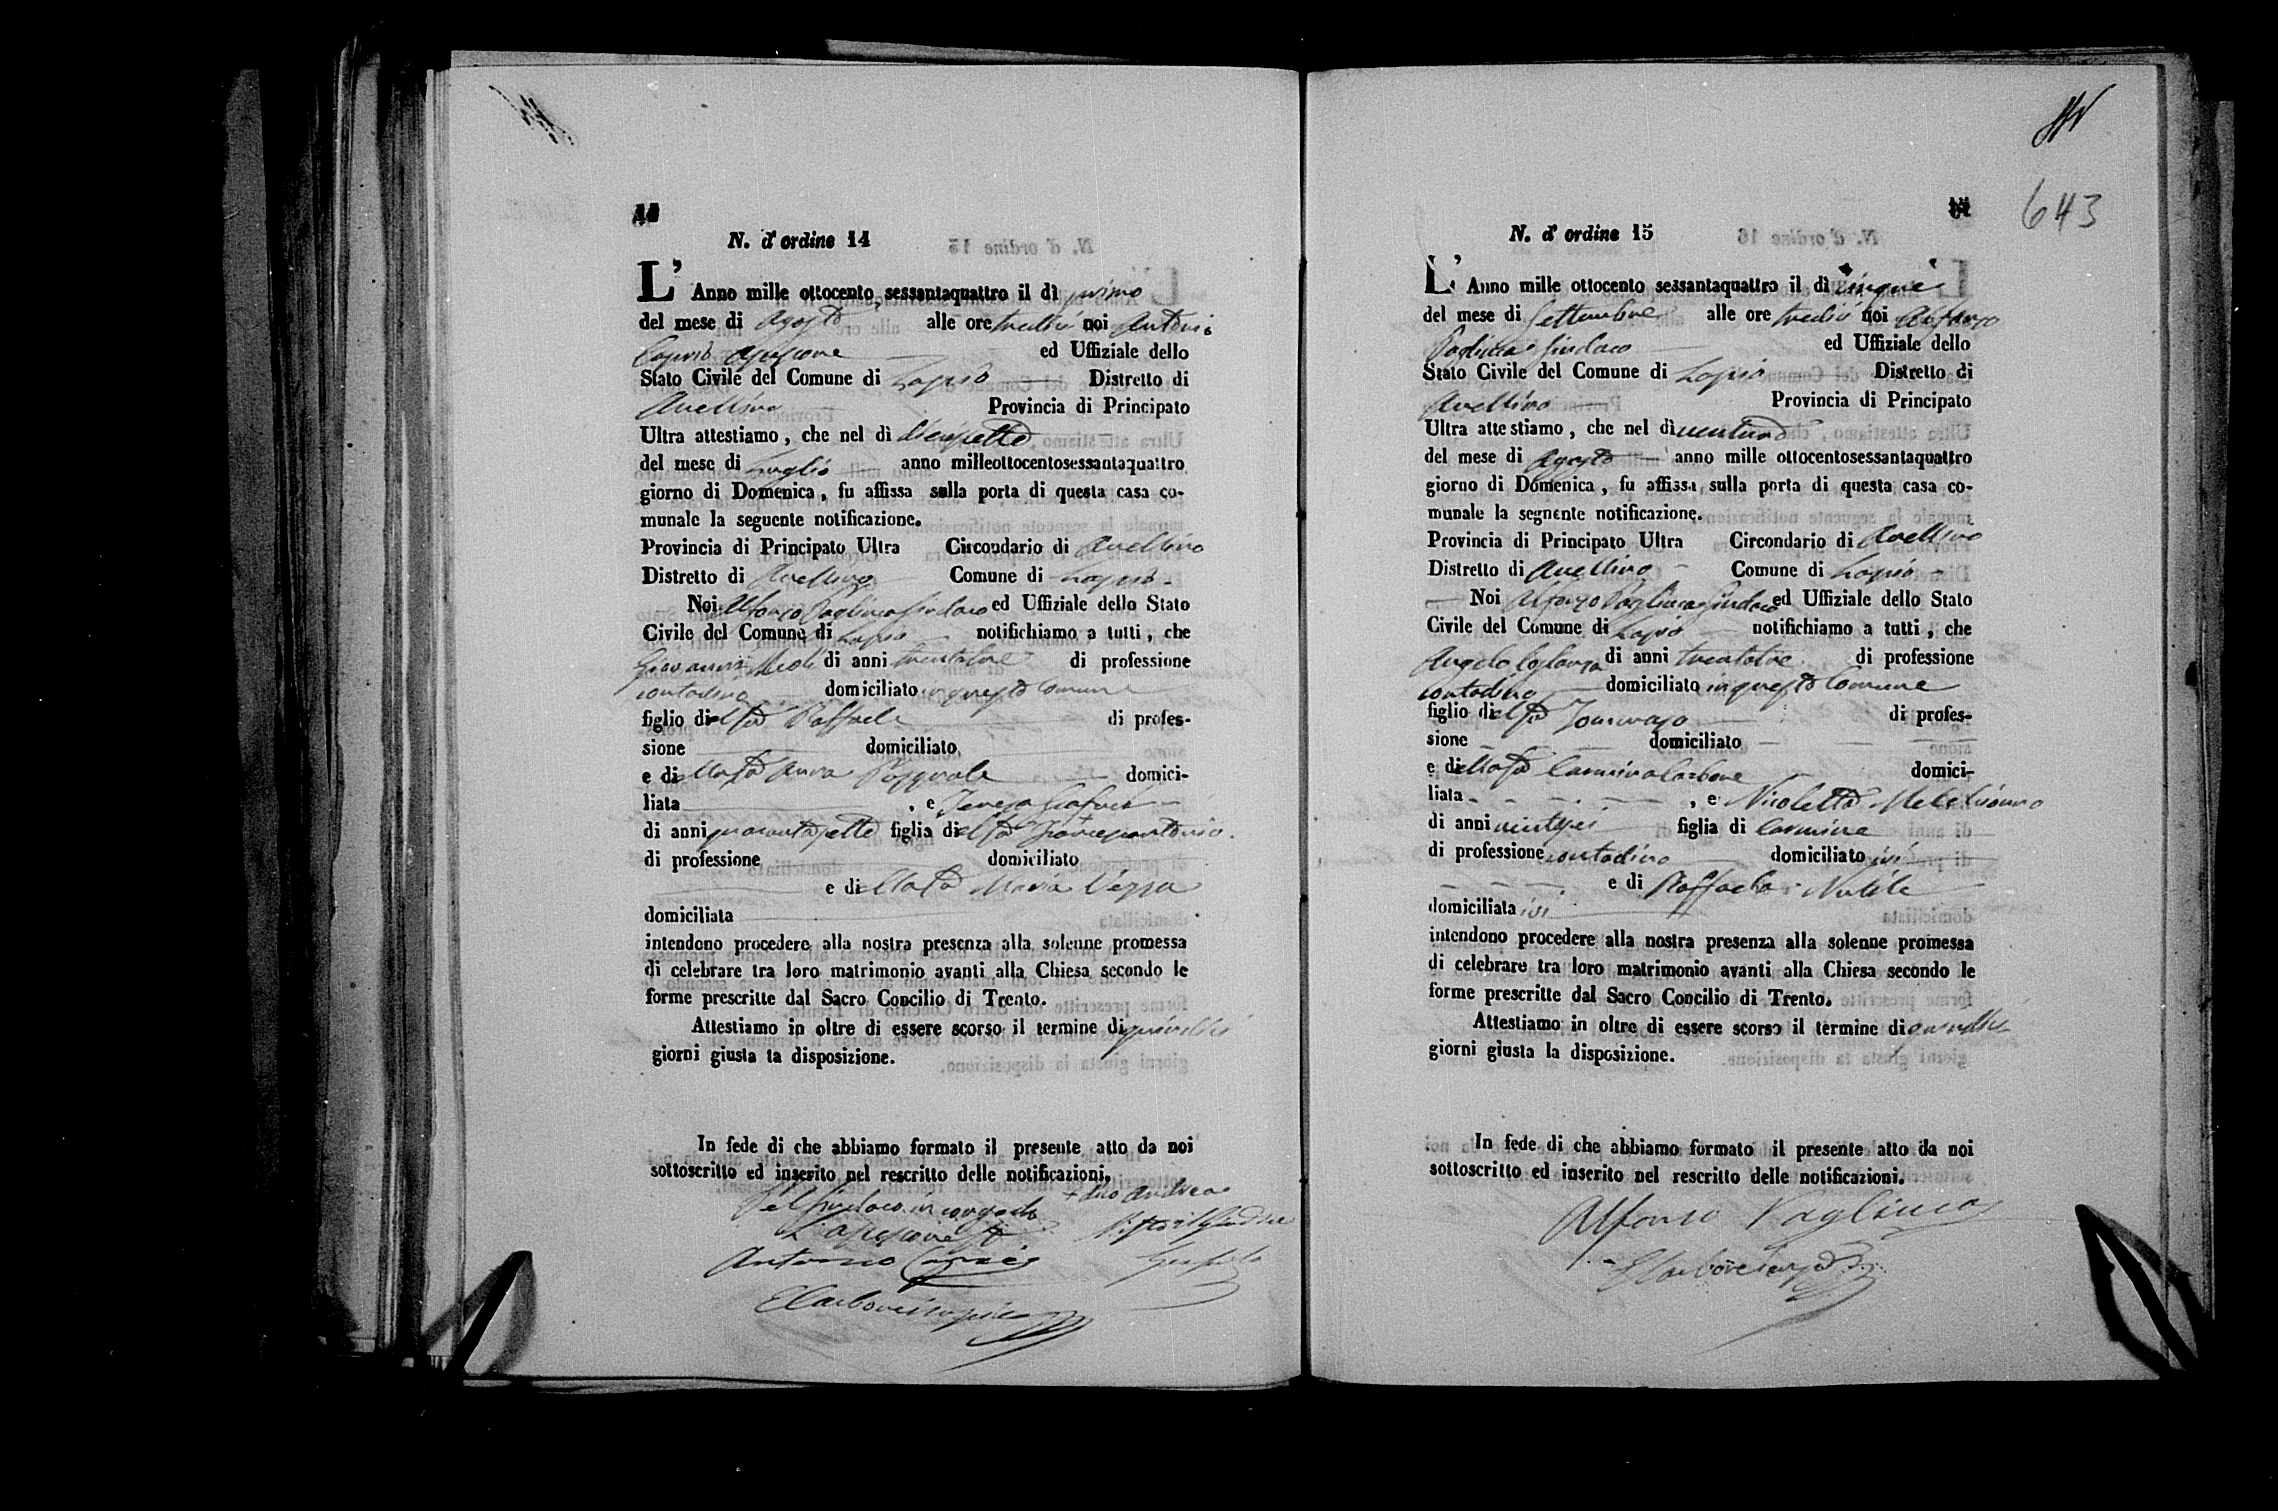 14
N. d' ordine 14
L' Anno mille ottocento sessantaquattro il dì primo
del mese di Agosto alle ore tredici noi Antonio
Caprio ed Uffiziale dello
Stato Civile del Comune di Lapio Distretto di
Avellino Provincia di Principato
Ultra attestiamo, che nel dì diecisette
del mese di Luglio anno milleottocentosessantaquattro
giorno di Domenica, fu affissa sulla porta di questa casa co-
munale la seguente notificazione.
Provincia di Principato Ultra Circondario di Avellino
Distretto di Avellino Comune di Lapio
Noi Alfonso Vagliuca Sindaco ed Uffiziale dello Stato
Civile del Comune di Lapio notifichiamo a tutti, che
Giovanni di anni di professione
contadino domiciliato in questo Comune
figlio del fu Raffaele di profes-
sione domiciliato
e di della fu Anna Pasquale domici-
liata , e Teresa
di anni quarantasette figlia di del fu Francescantonio
di professione domiciliato
e di della fu Maria
domiciliata
intendono procedere alla nostra presenza alla solenne promessa
di celebrare tra loro matrimonio avanti alla Chiesa secondo le
forme prescritte dal Sacro Concilio di Trento.
Attestiamo in oltre di essere scorso il termine di quindici
giorni giusta la disposizione.
In fede di che abbiamo formato il presente atto da noi
sottoscritto ed inserito nel rescritto delle notificazioni.
Pel Sindaco
Antonio Caprio
643
N. d' ordine 15
L' Anno mille ottocento sessantaquattro il dì cinque
del mese di Settembre alle ore tredici noi Alfonso
Vagliuca Sindaco ed Uffiziale dello
Stato Civile del Comune di Lapio Distretto di
Avellino Provincia di Principato
Ultra attestiamo, che nel dì ventuno
del mese di Agosto anno mille ottocentosessantaquattro
giorno di Domenica, fu affissa sulla porta di questa casa co-
munale la segnente notificazione.
Provincia di Principato Ultra Circondario di Avellino
Distretto di Avellino Comune di Lapio
Noi Alfonso Vagliuca Sindaco ed Uffiziale dello Stato
Civile del Comune di Lapio notifichiamo a tutti, che
Angelo di anni trentatre di professione
contadino domiciliato in questo Comune
figlio del fu Tommaso di profes-
sione domiciliato
e di della fu Carmina Carbone domici-
liata , e Nicoletta
di anni ventisei figlia di Carmine
di professione contadino domiciliato ivi
e di Raffaela
domiciliata ivi
intendono procedere alla nostra presenza alla solenne promessa
di celebrare tra loro matrimonio avanti alla Chiesa secondo le
forme prescritte dal Sacro Concilio di Trento.
Attestiamo in oltre di essere scorso il termine di quindici
giorni giusta la disposizione.
In fede di che abbiamo formato il presente atto da noi
sottoscritto ed inserito nel rescritto delle notificazioni.
Alfonso Vagliuca